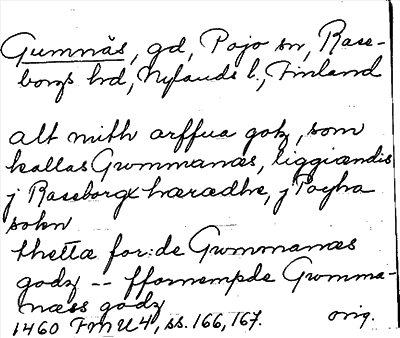 Gumnäs, gd, Pojo sn, Rase-
borgs hd, Nylands l., Finland
alt mith arffua gotz, som
kallas Gwmmanæs, liggiændis
j Raseborgx hærædhe, j Poyha
sokn
thetta for:de Gwmmanæs
godz -- fformempde Gwmma-
næss godz
1460 FMU 4, ss. 166, 167. orig.